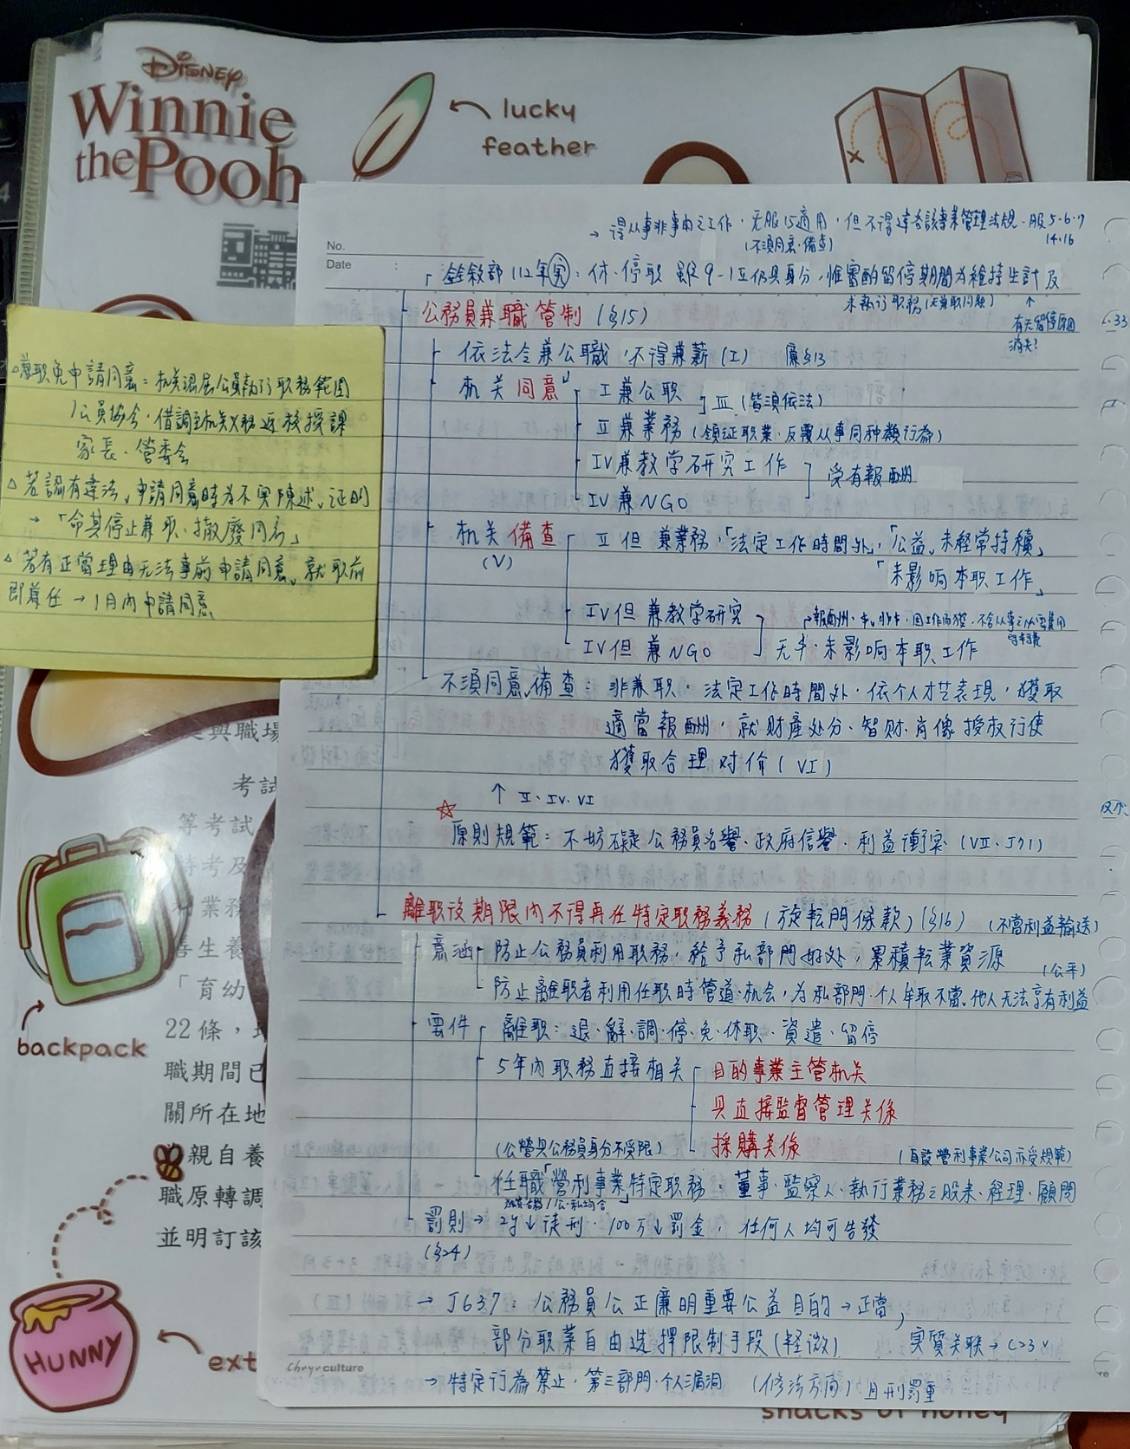 Disney
Winnie
the Pooh
lucky
feather
→ 得从事非事由之工作，无服15適用，但不得違各該專業管理法規．服5·6·7
(不須同意·備查)
14·16
No.
Date :
「銓敘部112年：休·停职 雖9-1Ⅱ仍具身分，惟審酌留停期間為維持生計及
未執行职務
公務員兼職管制 (§15)
有无留停原因
消失?
依法令兼公職，不得兼薪 (I) 廉§13
机关同意
I 兼公职
Ⅲ (皆須依法)
Ⅱ 兼業務 (領証职業·反覆从事同种類行為)
IV 兼教学研究工作
受有報酬
IV 兼NGO
机关備查
(V)
Ⅱ但 兼業務，「法定工作時間外」，「公益」未經常持續」
「未影响本职工作」
IV但 兼教学研究
IV但 兼NGO
无半·未影响本职工作
不須同意、備查：非兼职，法定工作時間外，依个人才艺表現，獲取
適當報酬，就財產处分、智財·肖像授权行使
獲取合理对价 (VI)
↑ Ⅱ、IV、VI
☆
原則規範：不妨碍公務員名譽·政府信譽·利益衝突 (VII、J71)
離职後期限内不得再任特定职務義務 (旋転門條款) (§16) (不當利益輸送)
意涵
防止公務員利用职務，給予私部門好处，累積転業資源
(公平)
防止離职者利用任职時管道·机会，为私部門·个人牟取不當、他人无法享有利益
要件
離职：退·辭·調·停·免·休职·資遣·留停
5年内职務直接相关
目的事業主管机关
具直接監督管理关係
採購关係
(公營與公務員身分不受限)
(再設營利事業公司亦受規範)
任職「營利事業」特定职務，董事·監察人·執行業務之股东·經理·顧問
罰則→ 2y↓徒刑·100万↓罰金，任何人均可告發
(§24)
→ J637：公務員公正廉明重要公益目的→正當，
部分职業自由选擇限制手段 (軽微) 实質关联→ C23 ✓
→ 特定行為禁止·第三部門·个人漏洞 (修法方向) 且刑罰重
△兼职免申請同意：机关選派公員執行职務範圍
公員協会·借調主机关义務返校授課
家長·管委会
△若認有違法，申請同意時為不实陳述、证明
→「命其停止兼职·撤廢同意」
△若有正當理由无法事前申請同意，就职前
即兼任→1月内申請同意
與職場
考試
等考試
特考及
業務
善生養
「育幼
22條，
職期間已
關所在地
親自養
職原轉調
並明訂該
backpack
HUNNY
ext
Chryseculture
snacks of honey